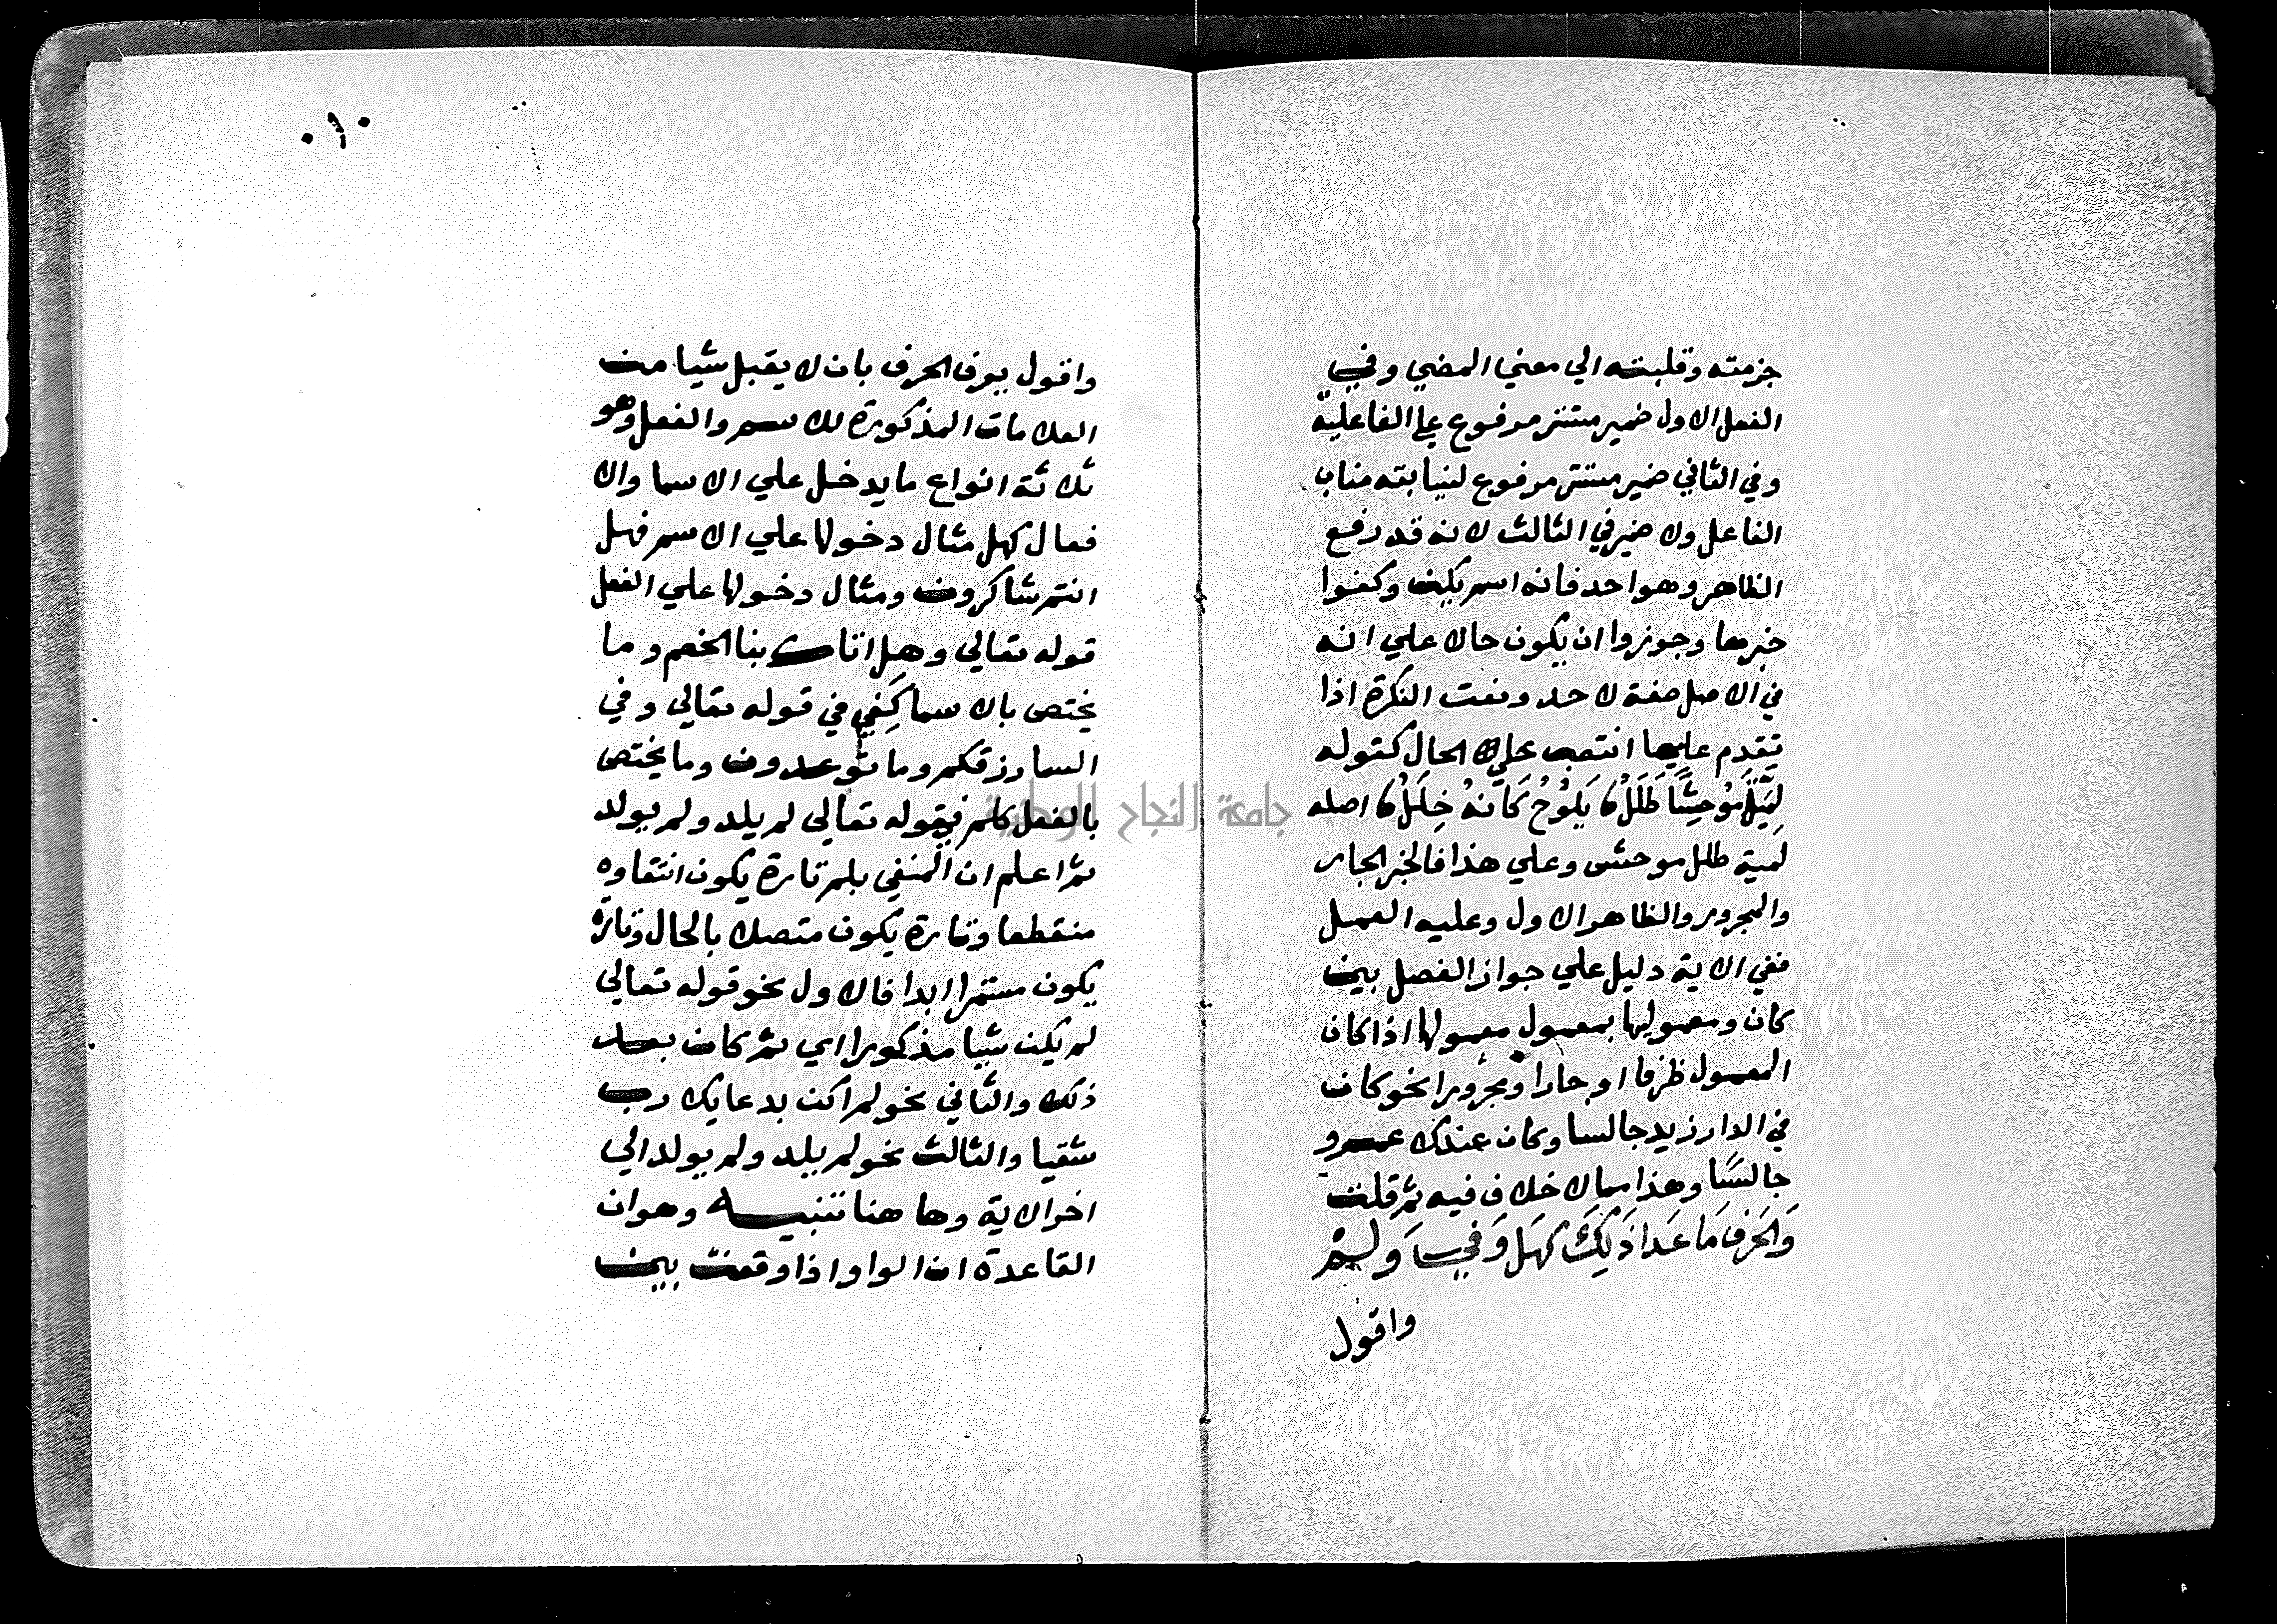 جزمته وقلبته الي معني المضي وفي
الفعل الاول ضمير مستتر مرفوع علي الفاعلية
وفي الثاني ضمير مستتر مرفوع لنيابته مناب
الفاعل ولا ضمير في الثالث لانه قد رفع
الظاهر وهو احد فانه اسم يكن وكفوا
خبرها وجوزوا ان يكون حالا علي انه
في الاصل صفة لاحد ونعت النكرة اذا
تقدم عليها انتصب علي الحال كقوله
لِمَيَّةَ مُوحِشًا طَلَلُ يَلُوحُ كَأَنَّهُ خِلَلُ اصله
لمية طلل موحش وعلي هذا فالخبر الجار
والمجرور والظاهر الاول وعليه العمل
ففي الاية دليل علي جواز الفصل بين
كان ومعموليها بمعمول معمولها اذا كان
المعمول ظرفا او جارا ومجرورا نحو كان
في الدار زيد جالسا وكان عندك عمرو
جالسًا وهذا مما لا خلاف فيه ثم قلت
وَالحَرفُ مَا عَدَا ذَلِكَ كَهَل وَفي وَلَمْ
واقول
٠١٠
واقول يعرف الحرف بان لا يقبل شيا من
العلامات المذكورة للاسم والفعل وهو
ثلاثة انواع ما يدخل علي الاسما والا
فعال كهل مثال دخولها علي الاسم فهل
انتم شاكرون ومثال دخولها علي الفعل
قوله تعالي وهل اتاك نبا الخصم وما
يختص بالاسما كَفِي في قوله تعالي وفي
السما رزقكم وما توعدون وما يختص
بالفعل كلم في قوله تعالي لم يلد ولم يولد
ثم اعلم ان المنفي بلم تارة يكون انتفاوه
منقطعا وتارة يكون متصلا بالحال وتارة
يكون مستمرا ابدا فالاول نحو قوله تعالي
لم يكن شيا مذكورا اي ثم كان بعد
ذلك والثاني نحو لم اكن بدعايك رب
شقيا والثالث نحو لم يلد ولم يولد الي
اخر الاية وها هنا تنبيه وهو ان
القاعدة ان الواو اذا وقعت بين
جامعة النجاح الوطنية